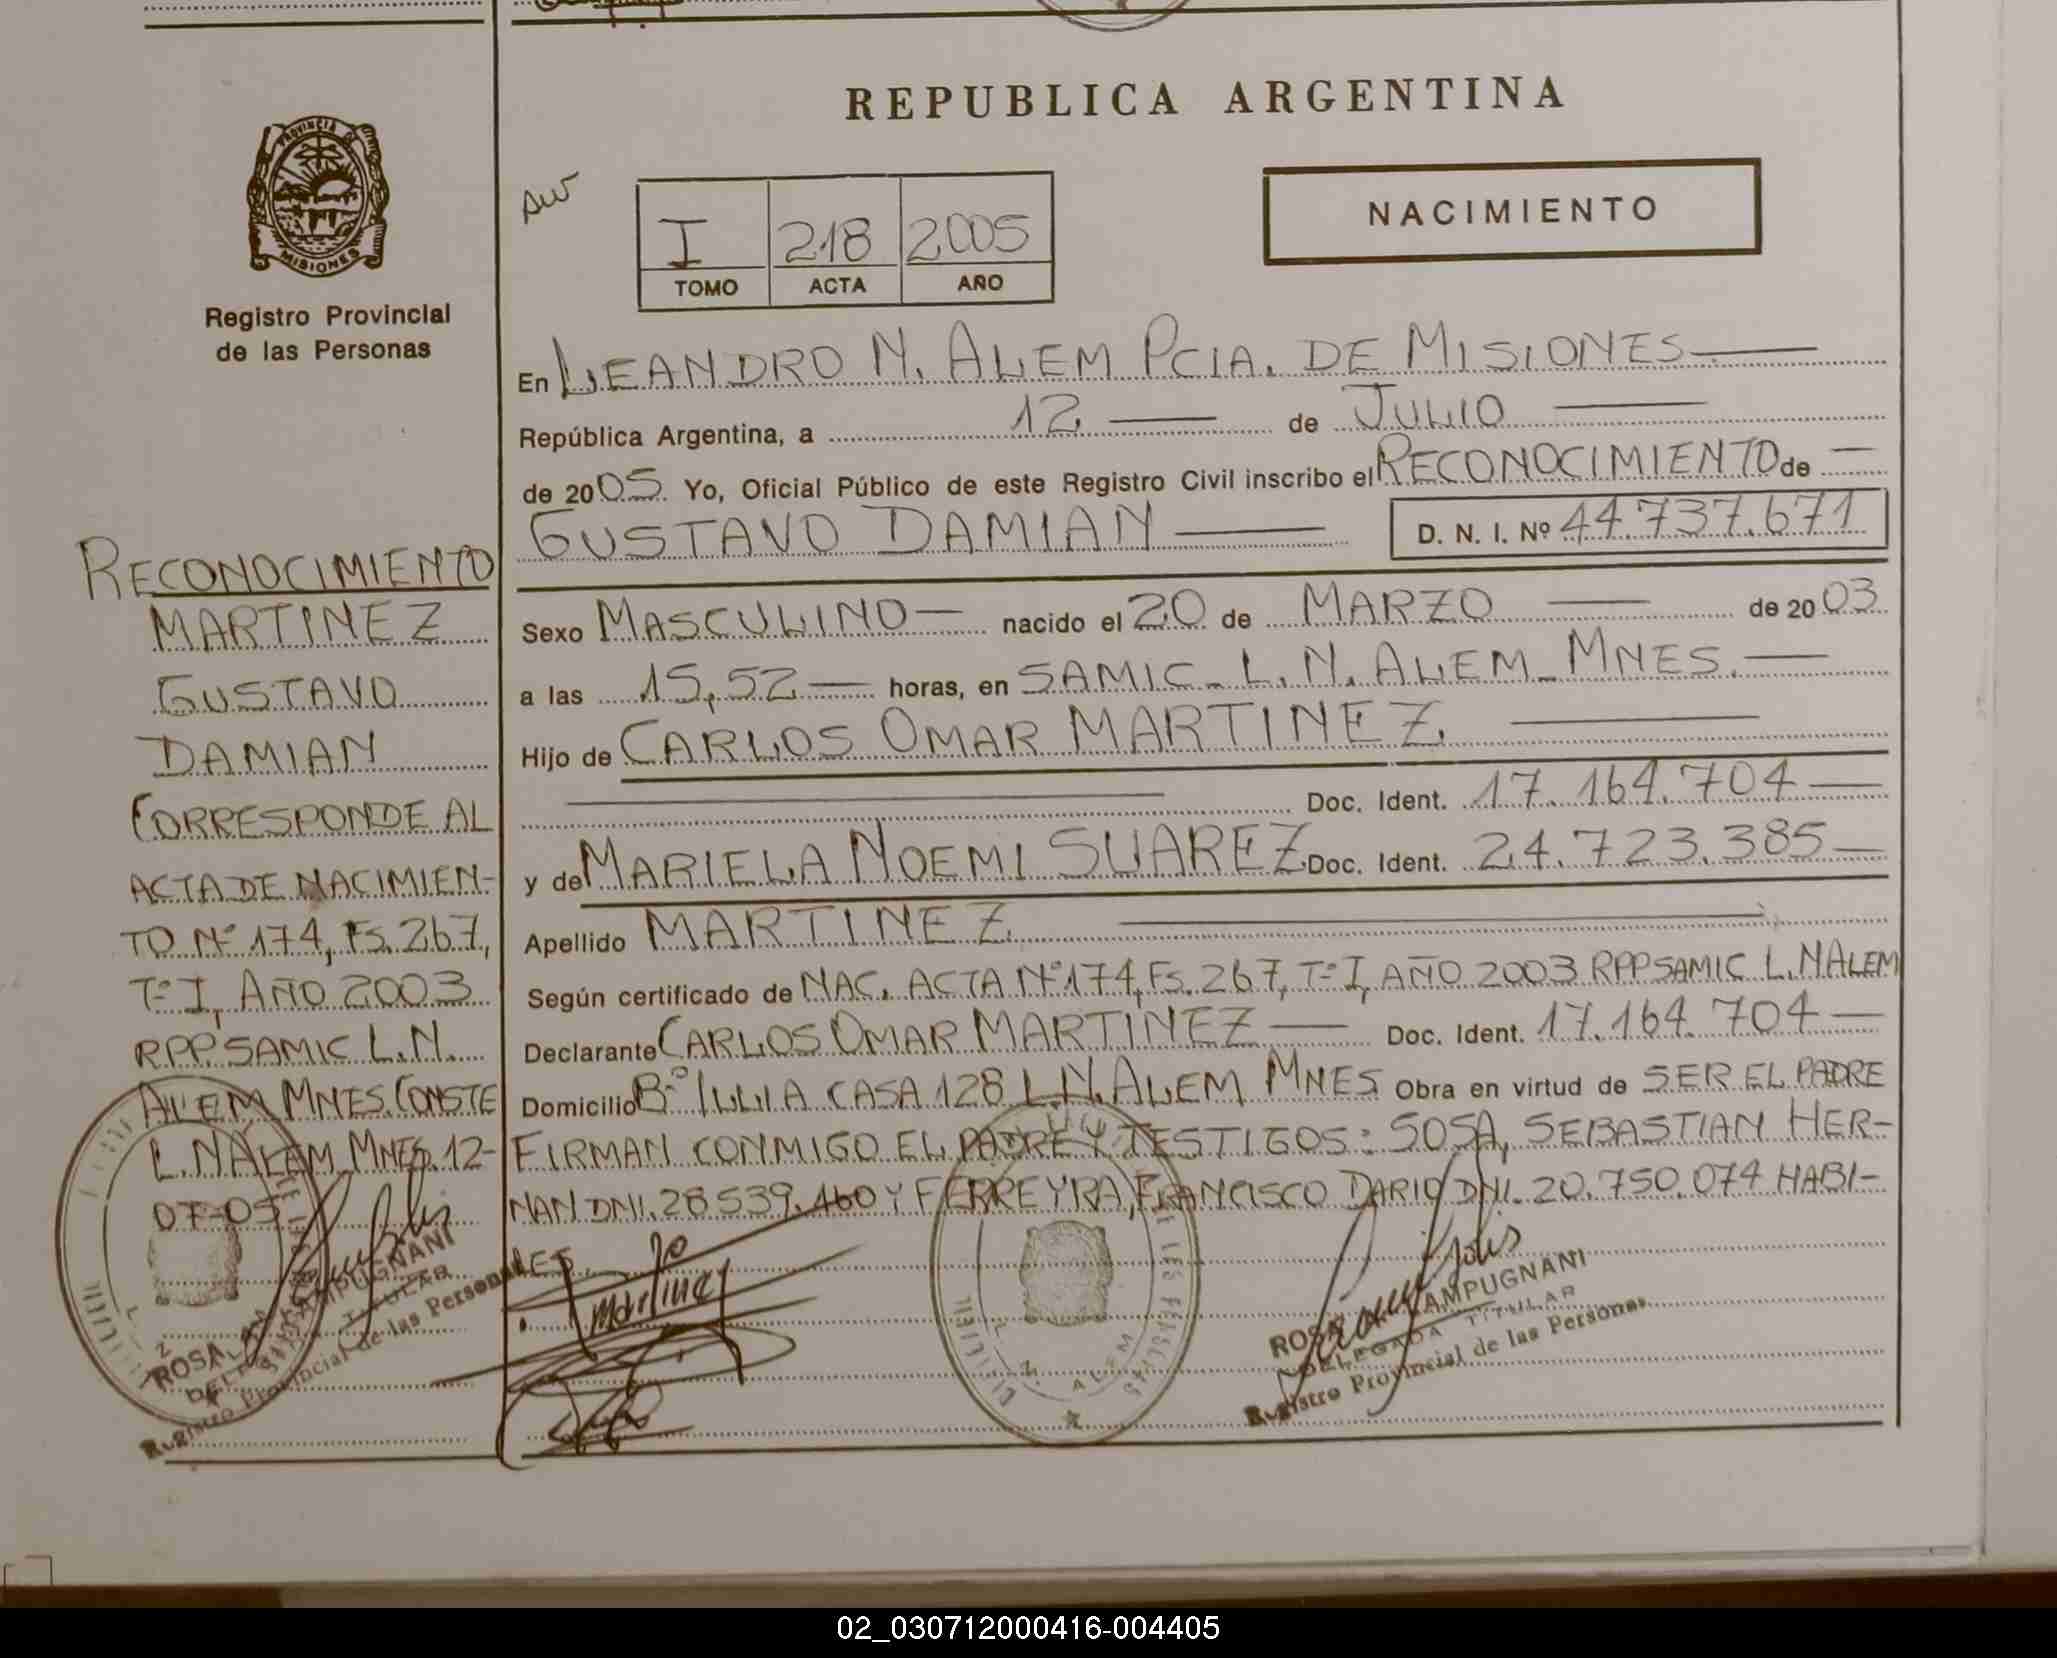 PROVINCIA DE
MISIONES
Registro Provincial
de las Personas
RECONOCIMIENTO
MARTINEZ
GUSTAVO
DAMIAN
CORRESPONDE AL
ACTA DE NACIMIEN-
TO Nº 174, FS. 267,
Tº I, AÑO 2003
RPP. SAMIC L.N.
ALEM MNES. CONSTE
L.N ALEM MNES. 12-
07-05
REPUBLICA ARGENTINA
I 218 2005
TOMO ACTA AÑO
NACIMIENTO
En LEANDRO N. ALEM PCIA. DE MISIONES
República Argentina, a 12 de JULIO
de 2005. Yo, Oficial Público de este Registro Civil inscribo el RECONOCIMIENTO de
GUSTAVO DAMIAN D. N. I. Nº 44.737.671
Sexo MASCULINO nacido el 20 de MARZO de 2003
a las 15,52 horas, en SAMIC - L. N. ALEM - MNES.
Hijo de CARLOS OMAR MARTINEZ
Doc. Ident. 17.164.704
y de MARIELA NOEMI SUAREZ Doc. Ident. 24.723.385
Apellido MARTINEZ
Según certificado de NAC. ACTA Nº 174, FS. 267, Tº I, AÑO 2003 RPP SAMIC L.N ALEM
Declarante CARLOS OMAR MARTINEZ Doc. Ident. 17.164.704
Domicilio Bº ILLIA CASA 128 L.N. ALEM MNES Obra en virtud de SER EL PADRE
FIRMAN CONMIGO EL PADRE Y TESTIGOS: SOSA, SEBASTIAN HER-
NAN DNI. 28.539.460 Y FERREYRA, FRANCISCO DARIO DNI. 20.750.074 HABI-
LES
Martinez
ROSA CAMPUGNANI
TITULAR
Registro Provincial de las Personas
L. N. ALEM
ROSA CAMPUGNANI
DELEGADA TITULAR
Registro Provincial de las Personas
02_030712000416-004405